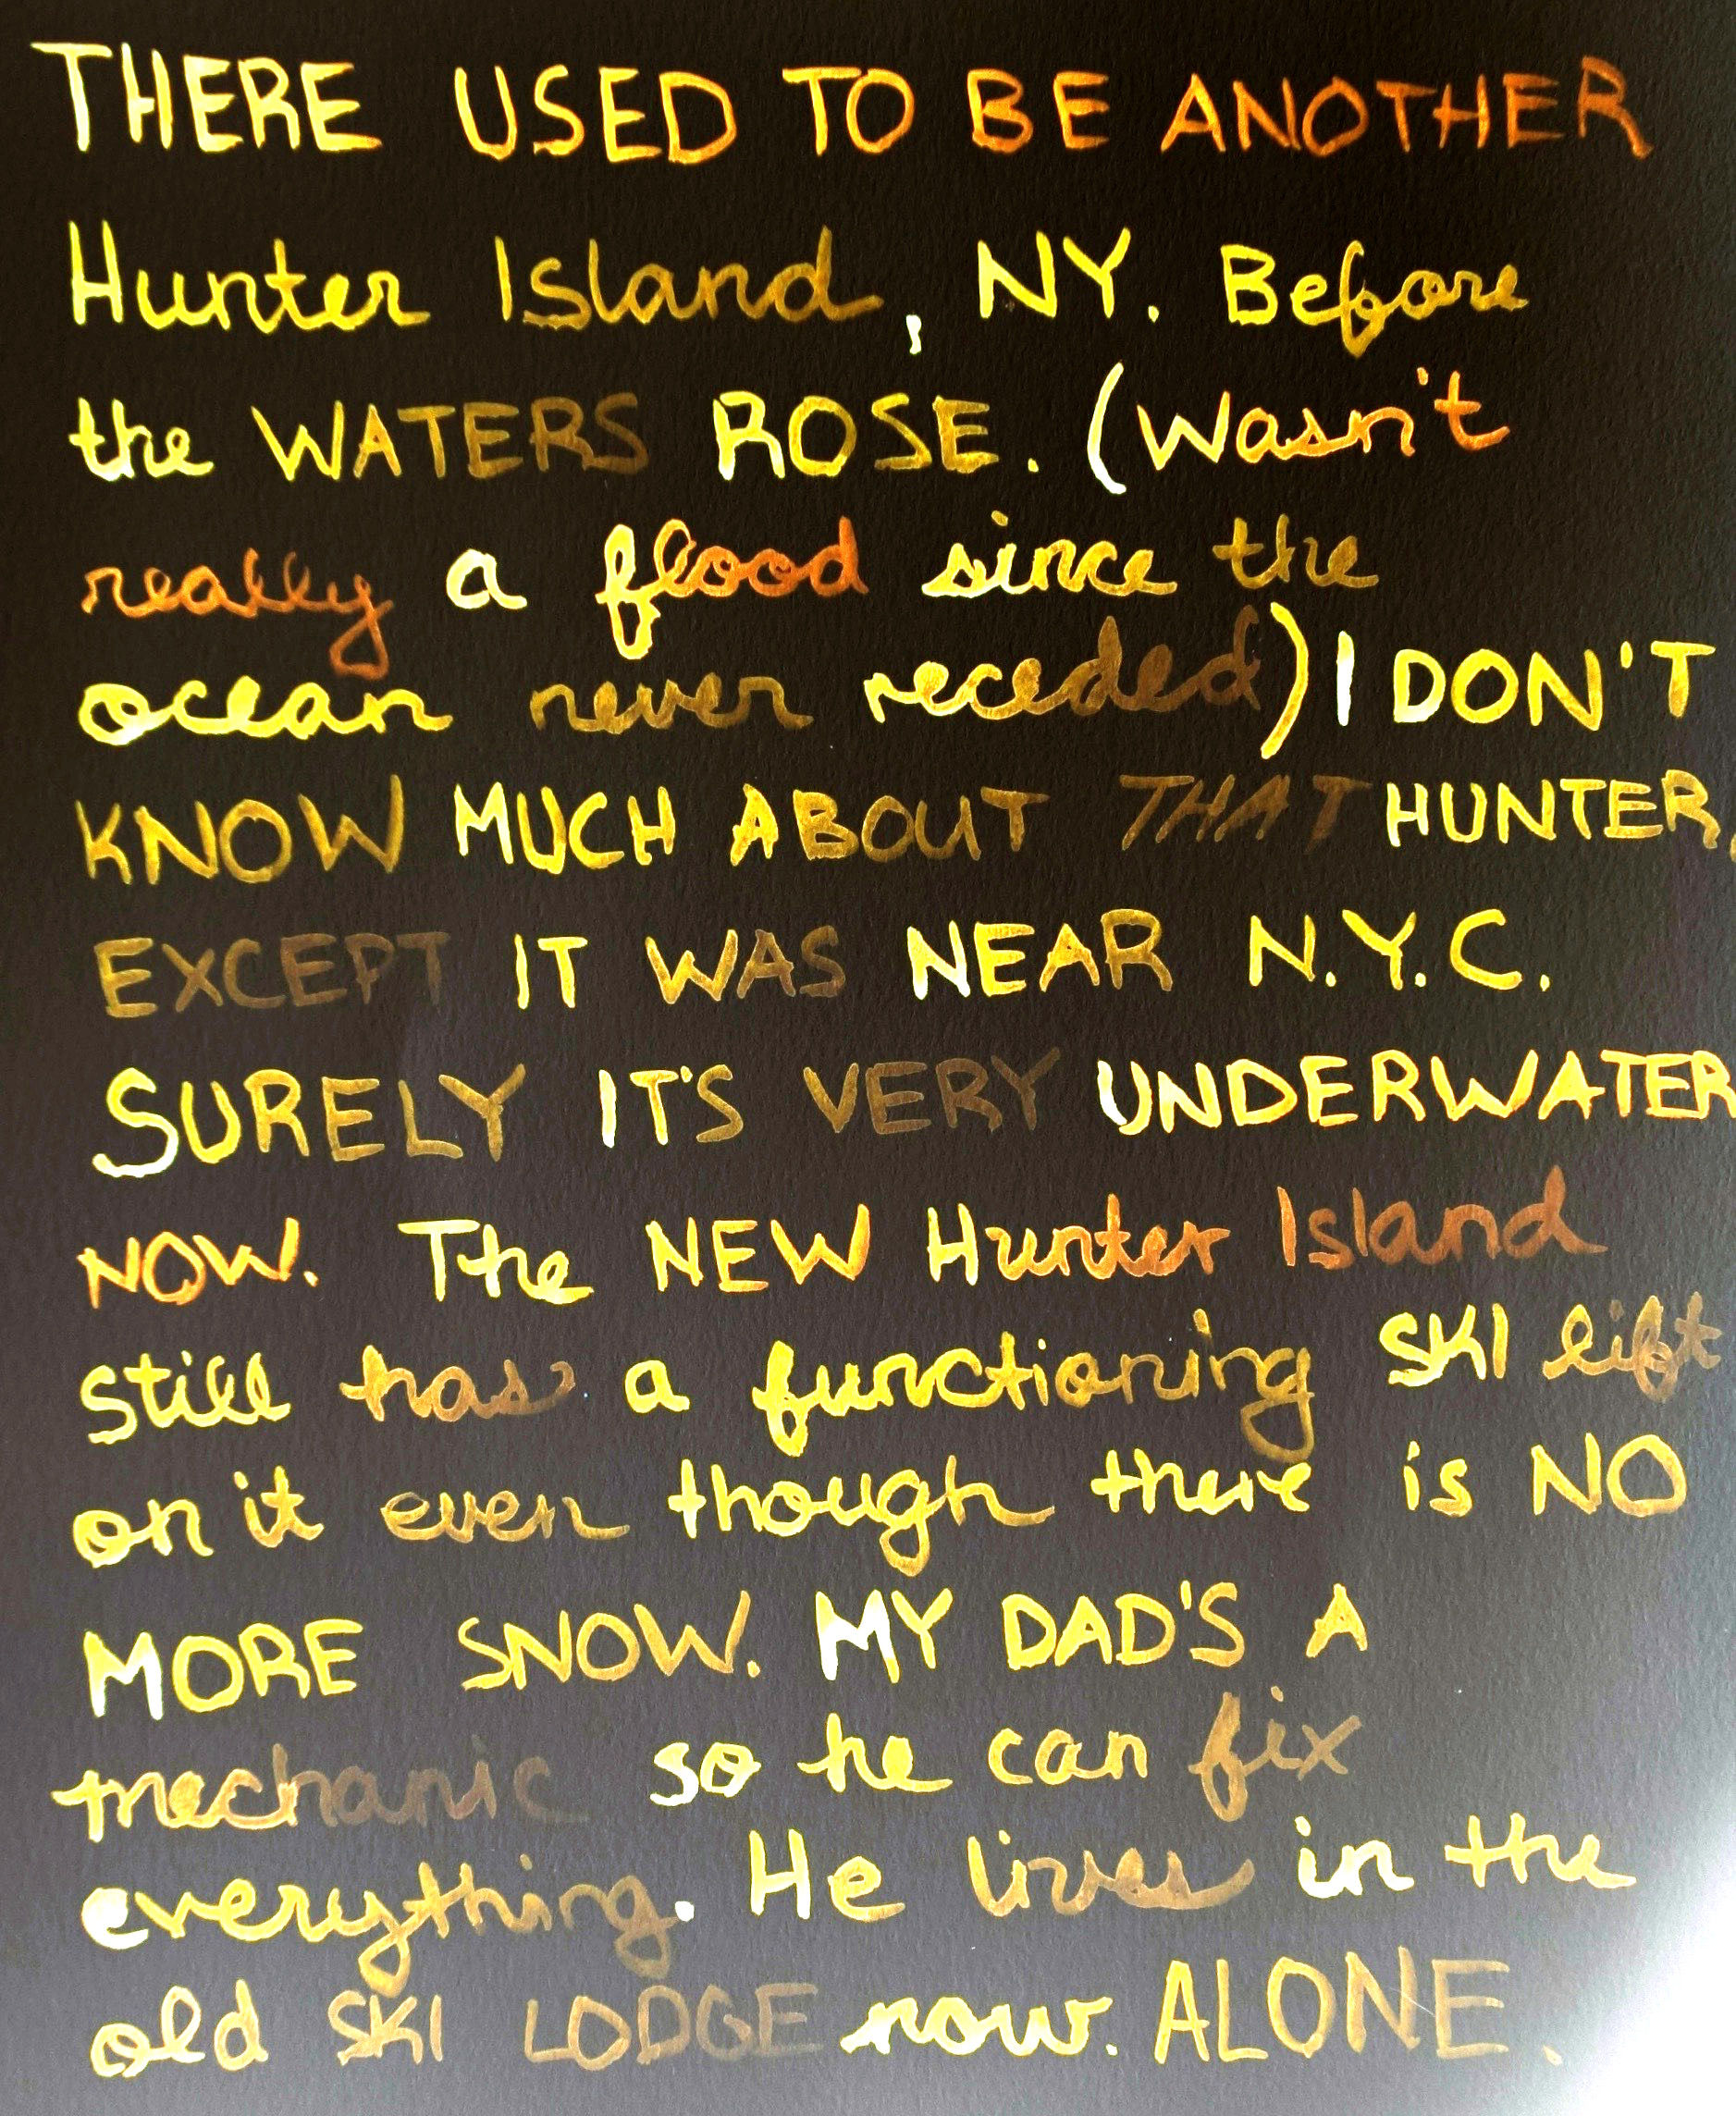 THERE USED TO BE ANOTHER
Hunter Island, NY. Before
the WATERS ROSE. (Wasn't
really a flood since the
ocean never receded) I DON'T
KNOW MUCH ABOUT THAT HUNTER,
EXCEPT IT WAS NEAR N.Y.C.
SURELY IT'S VERY UNDERWATER
NOW. The NEW Hunter Island
still has a functioning SKI lift
on it even though there is NO
MORE SNOW. MY DAD'S A
mechanic so he can fix
everything. He lives in the
old SKI LODGE now. ALONE.